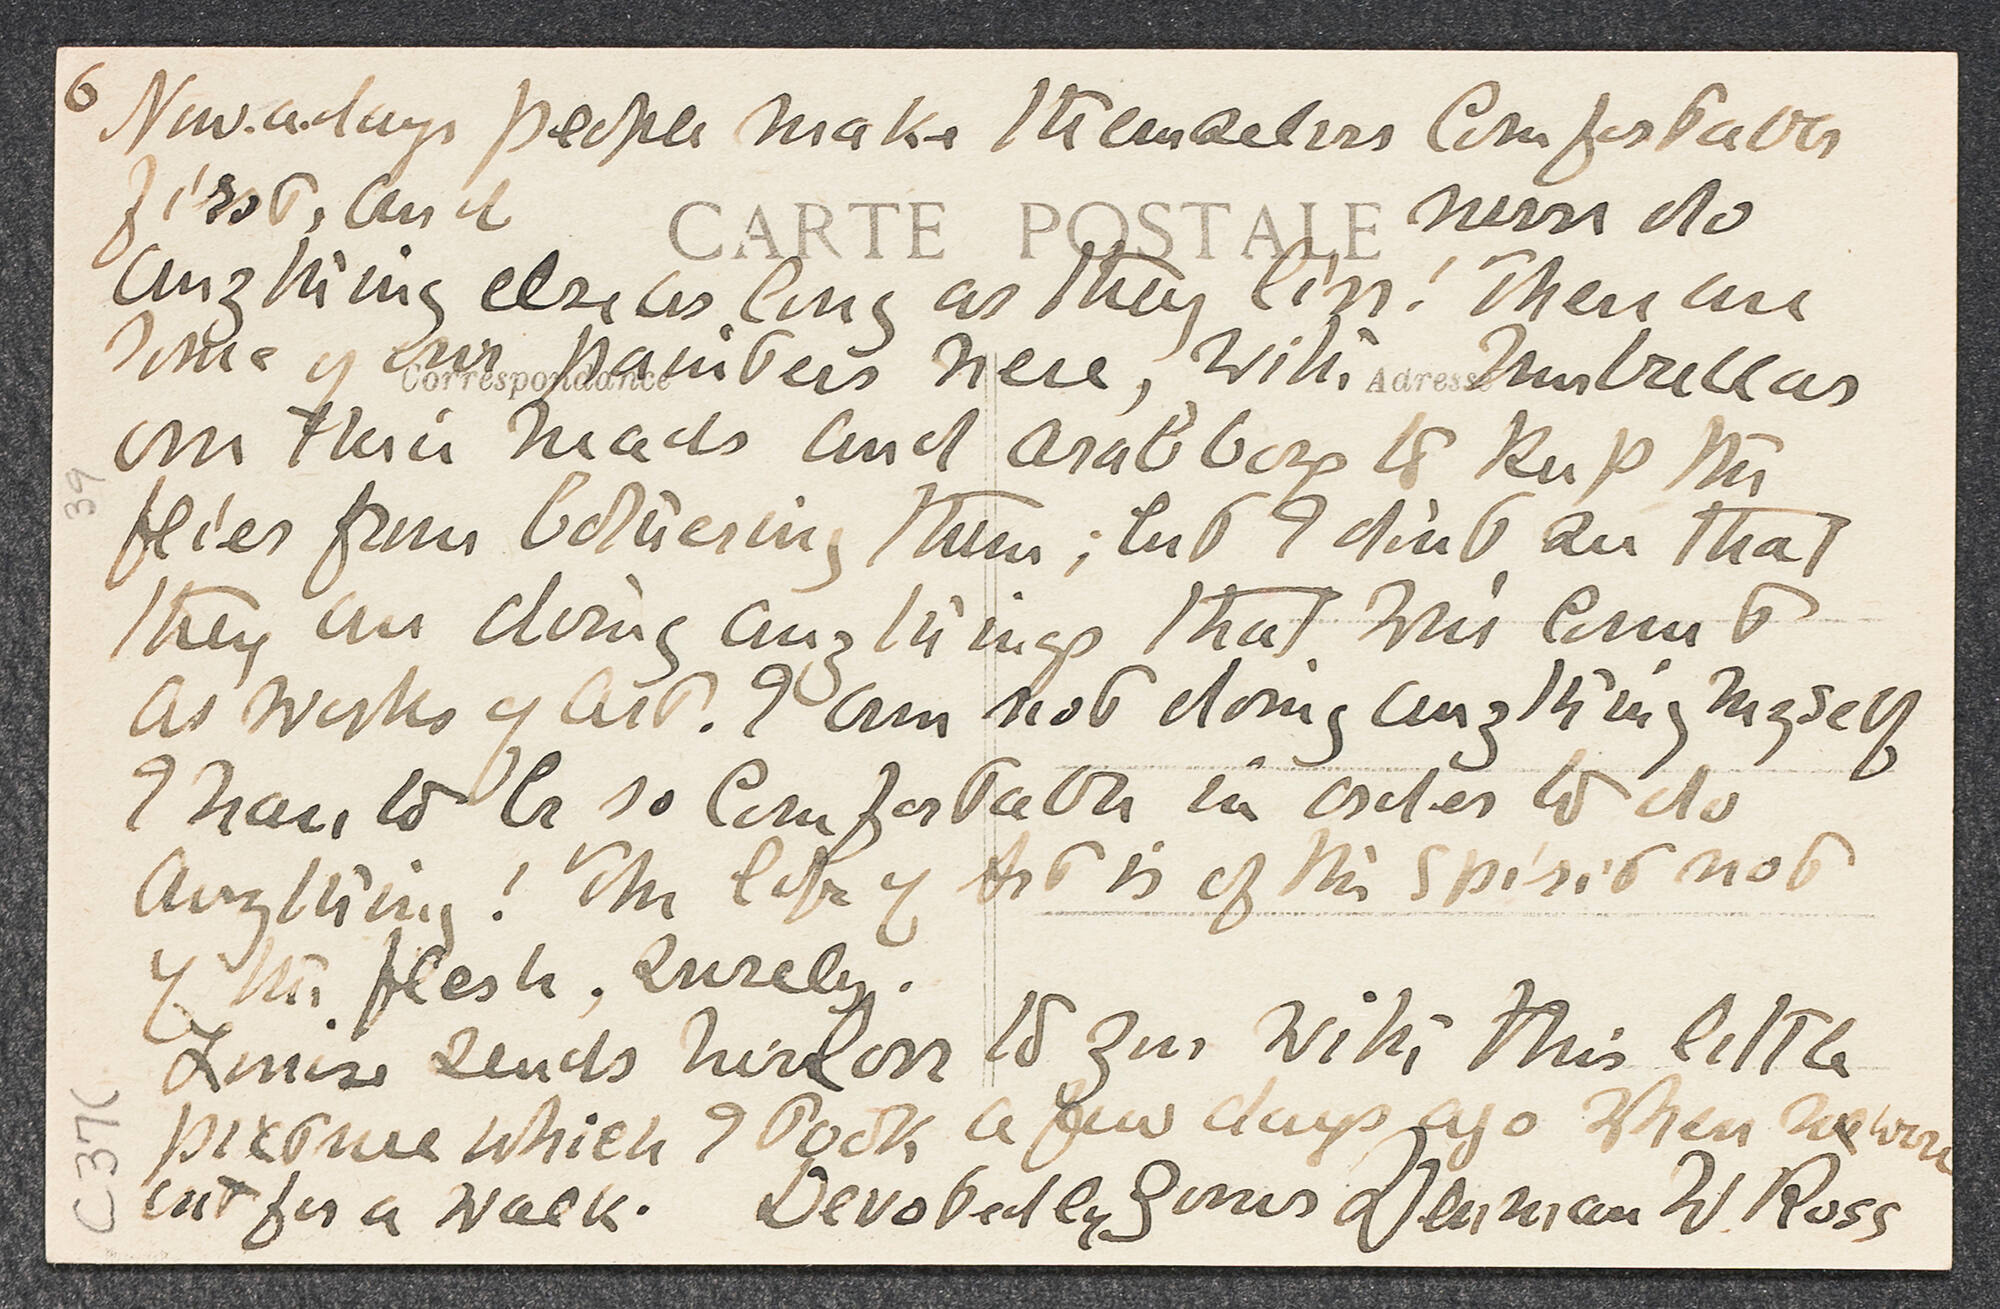 6
Now.a.days people make themselves comfortable
first, and never do
CARTE POSTALE
anything else as long as they live! There are
some of our painters here, with umbrellas
Correspondance
Adresse
on their heads and arab boys to keep the
39
flies from bothering them; but I dont see that
they are doing anythings that will count
as works of art. I am not doing anything myself
I have to be so comfortable in order to do
anything! The life of Art is of the spirit not
of the flesh, surely.
Louise sends her love to you with this little
picture which I took a few days ago when we were
out for a walk. Devotedly Yours Denman W Ross
C37(